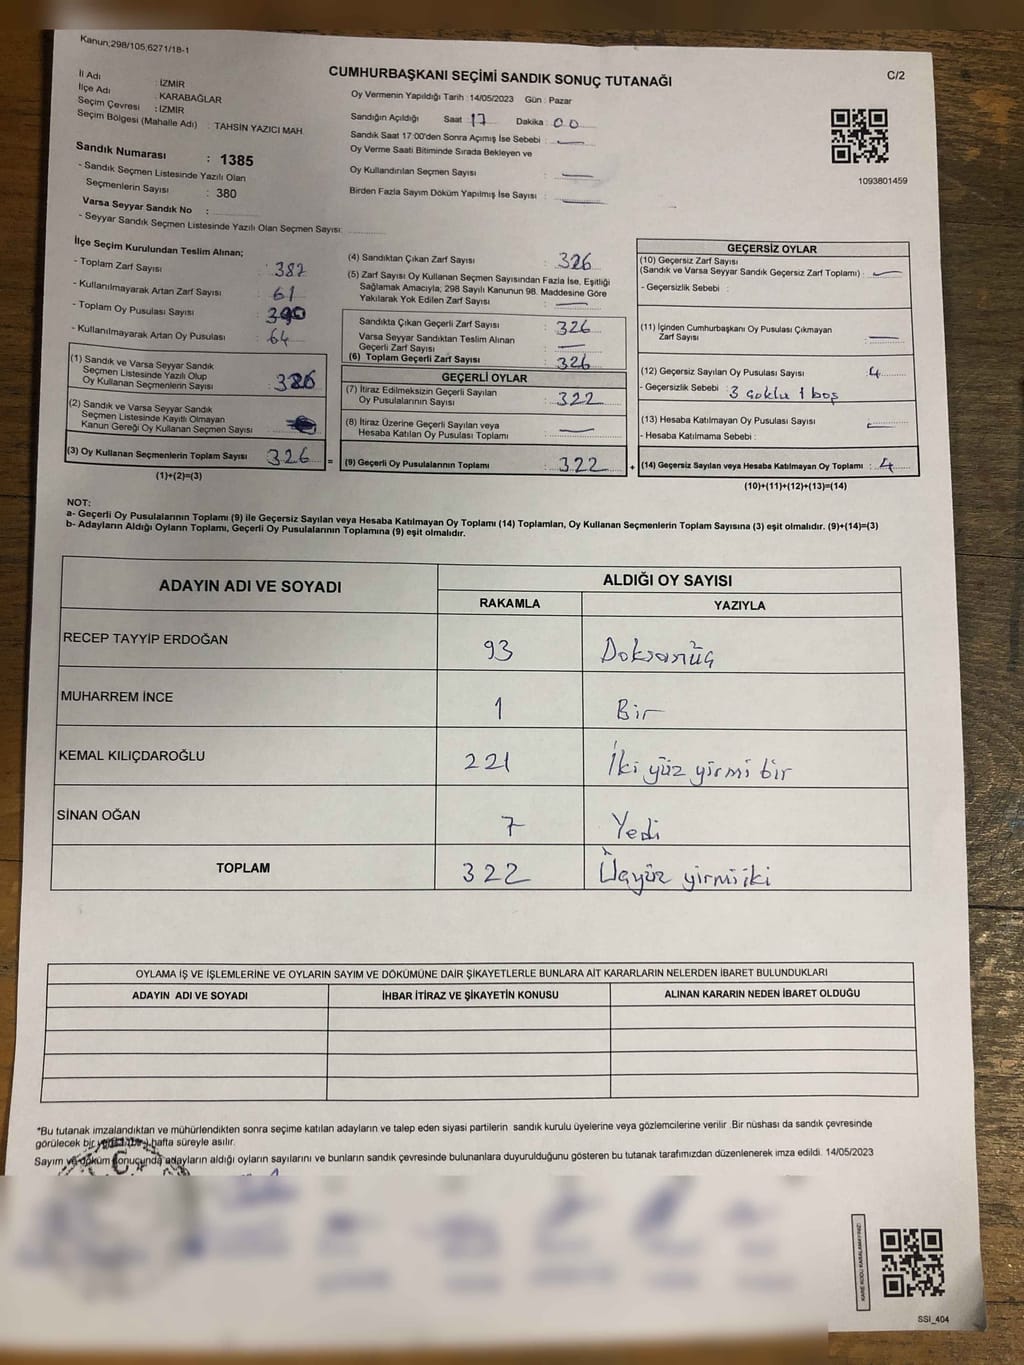 Kanun;298/105,6271/18-1
CUMHURBAŞKANI SEÇİMİ SANDIK SONUÇ TUTANAĞI
C/2
İl Adı : İZMİR
İlçe Adı : KARABAĞLAR
Seçim Çevresi : İZMİR
Seçim Bölgesi (Mahalle Adı) : TAHSİN YAZICI MAH.
Sandık Numarası : 1385
- Sandık Seçmen Listesinde Yazılı Olan
Seçmenlerin Sayısı : 380
Varsa Seyyar Sandık No :
- Seyyar Sandık Seçmen Listesinde Yazılı Olan Seçmen Sayısı:
Oy Vermenin Yapıldığı Tarih : 14/05/2023 Gün : Pazar
Sandığın Açıldığı Saat 17 Dakika : 00
Sandık Saat 17:00'den Sonra Açımış İse Sebebi : —
Oy Verme Saati Bitiminde Sırada Bekleyen ve
Oy Kullandırılan Seçmen Sayısı : —
Birden Fazla Sayım Döküm Yapılmış İse Sayısı : —
1093801459
İlçe Seçim Kurulundan Teslim Alınan;
- Toplam Zarf Sayısı : 387
- Kullanılmayarak Artan Zarf Sayısı : 61
- Toplam Oy Pusulası Sayısı : 390
- Kullanılmayarak Artan Oy Pusulası : 64
(1) Sandık ve Varsa Seyyar Sandık
Seçmen Listesinde Yazılı Olup
Oy Kullanan Seçmenlerin Sayısı : 326
(2) Sandık ve Varsa Seyyar Sandık
Seçmen Listesinde Kayıtlı Olmayan
Kanun Gereği Oy Kullanan Seçmen Sayısı :
(3) Oy Kullanan Seçmenlerin Toplam Sayısı : 326 =
(1)+(2)=(3)
(4) Sandıktan Çıkan Zarf Sayısı : 326
(5) Zarf Sayısı Oy Kullanan Seçmen Sayısından Fazla İse, Eşitliği
Sağlamak Amacıyla, 298 Sayılı Kanunun 98. Maddesine Göre
Yakılarak Yok Edilen Zarf Sayısı : —
Sandıkta Çıkan Geçerli Zarf Sayısı : 326
Varsa Seyyar Sandıktan Teslim Alınan
Geçerli Zarf Sayısı : —
(6) Toplam Geçerli Zarf Sayısı : 326
GEÇERLİ OYLAR
(7) İtiraz Edilmeksizin Geçerli Sayılan
Oy Pusulalarının Sayısı : 322
(8) İtiraz Üzerine Geçerli Sayılan veya
Hesaba Katılan Oy Pusulası Toplamı : —
(9) Geçerli Oy Pusulalarının Toplamı : 322 +
GEÇERSİZ OYLAR
(10) Geçersiz Zarf Sayısı
(Sandık ve Varsa Seyyar Sandık Geçersiz Zarf Toplamı) : —
- Geçersizlik Sebebi :
(11) İçinden Cumhurbaşkanı Oy Pusulası Çıkmayan
Zarf Sayısı : —
(12) Geçersiz Sayılan Oy Pusulası Sayısı : 4
- Geçersizlik Sebebi : 3 çoklu 1 boş
(13) Hesaba Katılmayan Oy Pusulası Sayısı : —
- Hesaba Katılmama Sebebi :
(14) Geçersiz Sayılan veya Hesaba Katılmayan Oy Toplamı : 4
(10)+(11)+(12)+(13)=(14)
NOT:
a- Geçerli Oy Pusulalarının Toplamı (9) ile Geçersiz Sayılan veya Hesaba Katılmayan Oy Toplamı (14) Toplamları, Oy Kullanan Seçmenlerin Toplam Sayısına (3) eşit olmalıdır. (9)+(14)=(3)
b- Adayların Aldığı Oyların Toplamı, Geçerli Oy Pusulalarının Toplamına (9) eşit olmalıdır.
ADAYIN ADI VE SOYADI ALDIĞI OY SAYISI
RAKAMLA YAZIYLA
RECEP TAYYİP ERDOĞAN 93 Doksanüç
MUHARREM İNCE 1 Bir
KEMAL KILIÇDAROĞLU 221 İki yüz yirmi bir
SİNAN OĞAN 7 Yedi
TOPLAM 322 Üçyüz yirmiiki
OYLAMA İŞ VE İŞLEMLERİNE VE OYLARIN SAYIM VE DÖKÜMÜNE DAİR ŞİKAYETLERLE BUNLARA AİT KARARLARIN NELERDEN İBARET BULUNDUKLARI
ADAYIN ADI VE SOYADI İHBAR İTİRAZ VE ŞİKAYETİN KONUSU ALINAN KARARIN NEDEN İBARET OLDUĞU
*Bu tutanak imzalandıktan ve mühürlendikten sonra seçime katılan adayların ve talep eden siyasi partilerin sandık kurulu üyelerine veya gözlemcilerine verilir .Bir nüshası da sandık çevresinde
görülecek bir hafta süreyle asılır.
Sayım ve döküm sonucunda adayların aldığı oyların sayılarını ve bunların sandık çevresinde bulunanlara duyurulduğunu gösteren bu tutanak tarafımızdan düzenlenerek imza edildi. 14/05/2023
KARE KODU KARALAMAYINIZ!
SSI_404